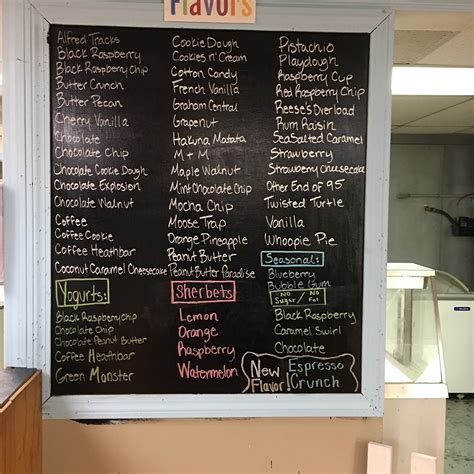 Flavors
Alfred Tracks
Black Raspberry
Black Raspberry Chip
Butter Crunch
Butter Pecan
Cherry Vanilla
Chocolate
Chocolate Chip
Chocolate Cookie Dough
Chocolate Explosion
Chocolate Walnut
Coffee
Coffee Cookie
Coffee Heathbar
Coconut Caramel Cheesecake
Cookie Dough
Cookies n' Cream
Cotton Candy
French Vanilla
Graham Central
Grapenut
Hakuna Matata
M + M
Maple Walnut
Mint Chocolate Chip
Mocha Chip
Moose Trap
Orange Pineapple
Peanut Butter
Peanut Butter Paradise
Pistachio
Playdough
Raspberry Cup
Red Raspberry Chip
Reese's Overload
Rum Raisin
SeaSalted Caramel
Strawberry
Strawberry Cheesecake
Other End of 95
Twisted Turtle
Vanilla
Whoopie Pie
Seasonal:
Blueberry
Bubble Gum
Yogurts:
Black Raspberry Chip
Chocolate Chip
Chocolate Peanut Butter
Coffee Heathbar
Green Monster
Sherbets
Lemon
Orange
Raspberry
Watermelon
No Sugar / No Fat
Black Raspberry
Caramel Swirl
Chocolate
New Flavor!
Espresso
Crunch